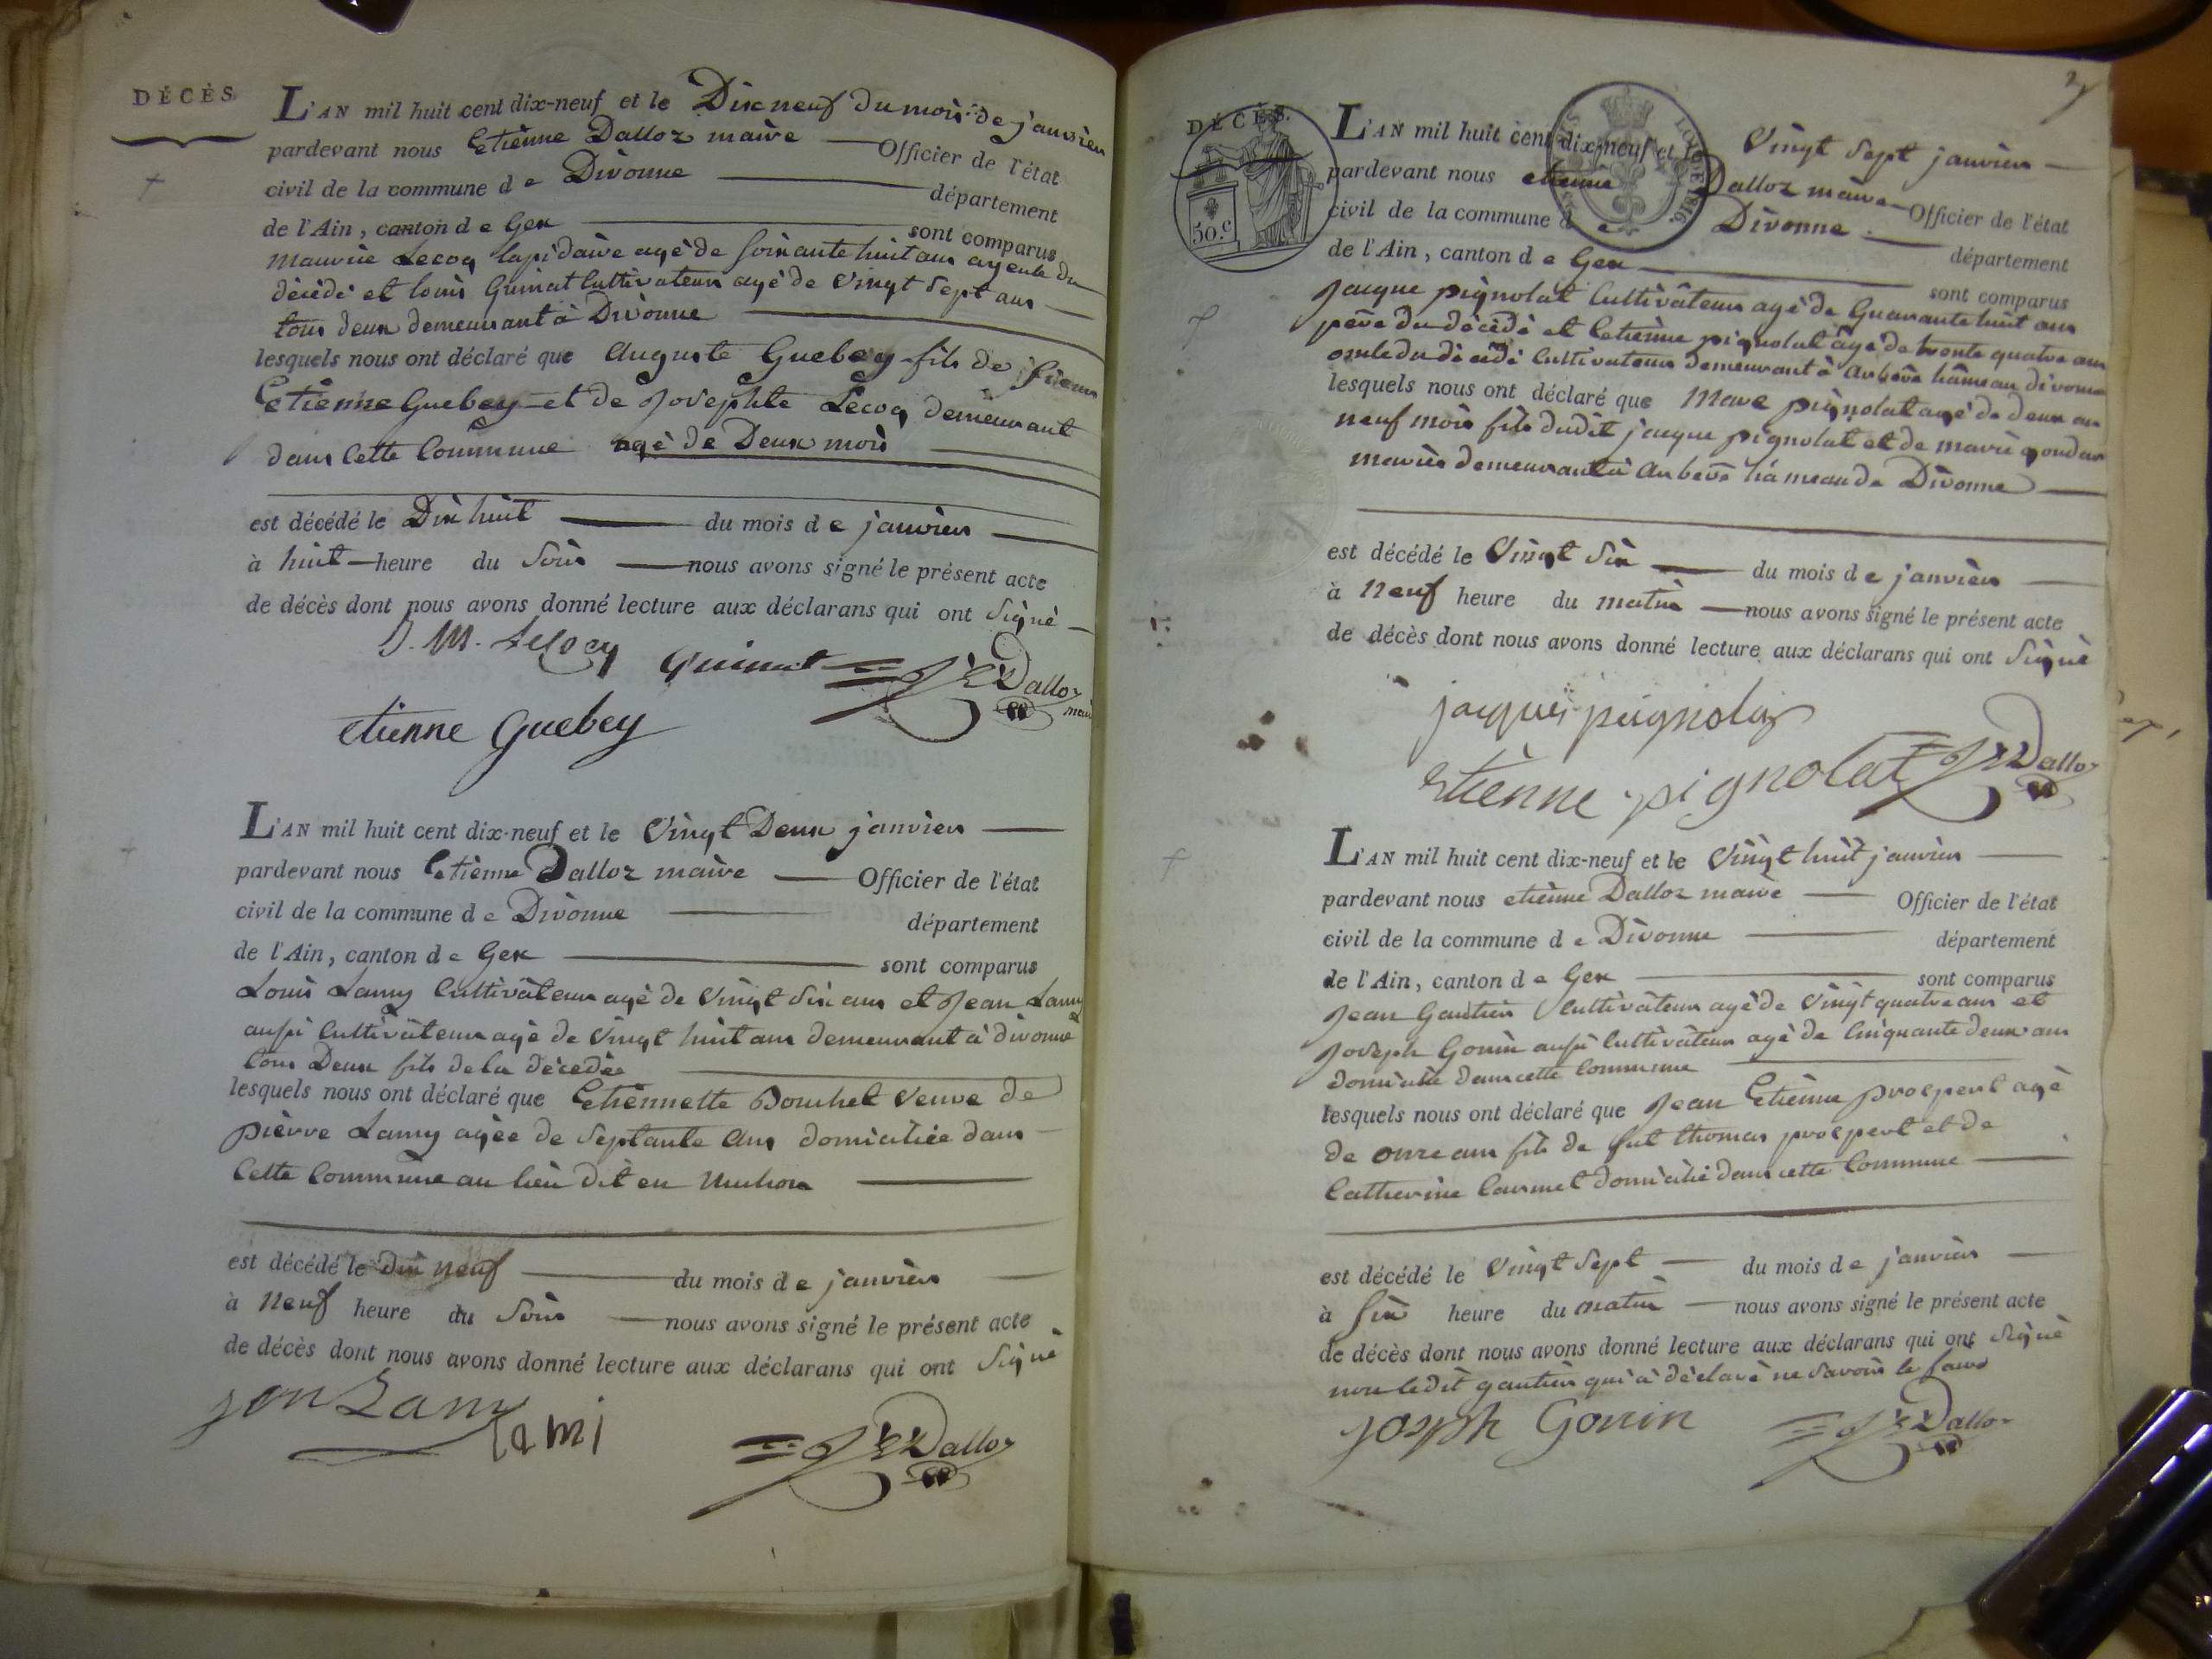 DÉCÈS.
L'AN mil huit cent dix-neuf et le Dix neuf du mois de janvier
pardevant nous Etienne Dalloz maire Officier de l'état
civil de la commune de Divonne département
de l'Ain, canton de Gex sont comparus
maurice Lecoq lapidaire agé de soixante huit ans ayeule du
décédé et louis Guinat Cultivateur agé de vingt sept ans
tous deux demeurant à Divonne
lesquels nous ont déclaré que Auguste Guebey fils de sieur
Etienne Guebey et de Josephte Lecoq demeurant
dans cette Commune agé de Deux mois
est décédé le Dix huit du mois de janvier
à huit heure du soir nous avons signé le présent acte
de décès dont nous avons donné lecture aux déclarans qui ont signé
Guinat Dalloz
maire
etienne Guebey
L'AN mil huit cent dix-neuf et le vingt Deux janvier
pardevant nous Etienne Dalloz maire Officier de l'état
civil de la commune de Divonne département
de l'Ain, canton de Gex sont comparus
Louis Lamy Cultivateur agé de vingt six ans et Jean Lamy
aussi Cultivateur agé de vingt huit ans demeurant à divonne
tous Deux fils de la décedée
lesquels nous ont déclaré que Etiennette Bouchet veuve de
pierre Lamy agée de septante ans domiciliée dans
Cette Commune au lieu dit en
est décédé le dix neuf du mois de janvier
à neuf heure du soir nous avons signé le présent acte
de décès dont nous avons donné lecture aux déclarans qui ont signé
jon Lamy
lami
Dalloz
2
DÉCÈS.
50.c
1816.
L'AN mil huit cent dix-neuf et le vingt sept janvier
pardevant nous etienne Dalloz maire Officier de l'état
civil de la commune de Divonne département
de l'Ain, canton de Gex sont comparus
Jacque pignolat Cultivateur agé de Quarante huit ans
père du décédé et Etienne pignolat agé de trente quatre ans
oncle du décédé Cultivateurs demeurant à Arbère hameau divonne
lesquels nous ont déclaré que Marc pignolat agé de deux an
neuf mois fils dudit jacque pignolat et de marie
mariés demeurant à Arbère hameau de Divonne
est décédé le vingt six du mois de janvier
à neuf heure du matin nous avons signé le présent acte
de décès dont nous avons donné lecture aux déclarans qui ont signé
jacques
Etienne pignolat Dalloz
L'AN mil huit cent dix-neuf et le vingt huit janvier
pardevant nous etienne Dalloz maire Officier de l'état
civil de la commune de Divonne département
de l'Ain, canton de Gex sont comparus
Jean Gautier Cultivateur agé de vingt quatre ans et
Joseph Gonin aussi Cultivateur agé de Cinquante deux ans
domicilié dans cette Commune
lesquels nous ont déclaré que Jean Etienne prospert agé
de onze ans fils de fut thomas prospert et de
Catherine domicilié dans cette Commune
est décédé le vingt sept du mois de janvier
à six heure du matin nous avons signé le présent acte
de décès dont nous avons donné lecture aux déclarans qui ont signé
non ledit gautier qui a déclaré ne savoir le faire
joseph Gonin Dalloz